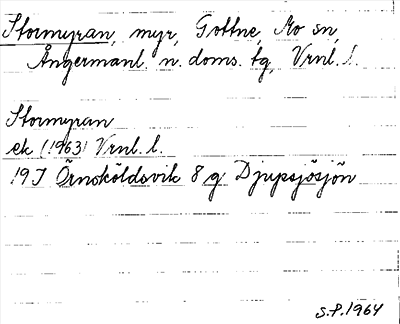 Stormyran, myr, Gottne, Mo sn,
Ångermanl. n. doms. tg, Vrnl. l.
Stormyran
ek (1963) Vrnl. l.
19J Örnsköldsvik 8 g Djupsjösjön
S.P.1964